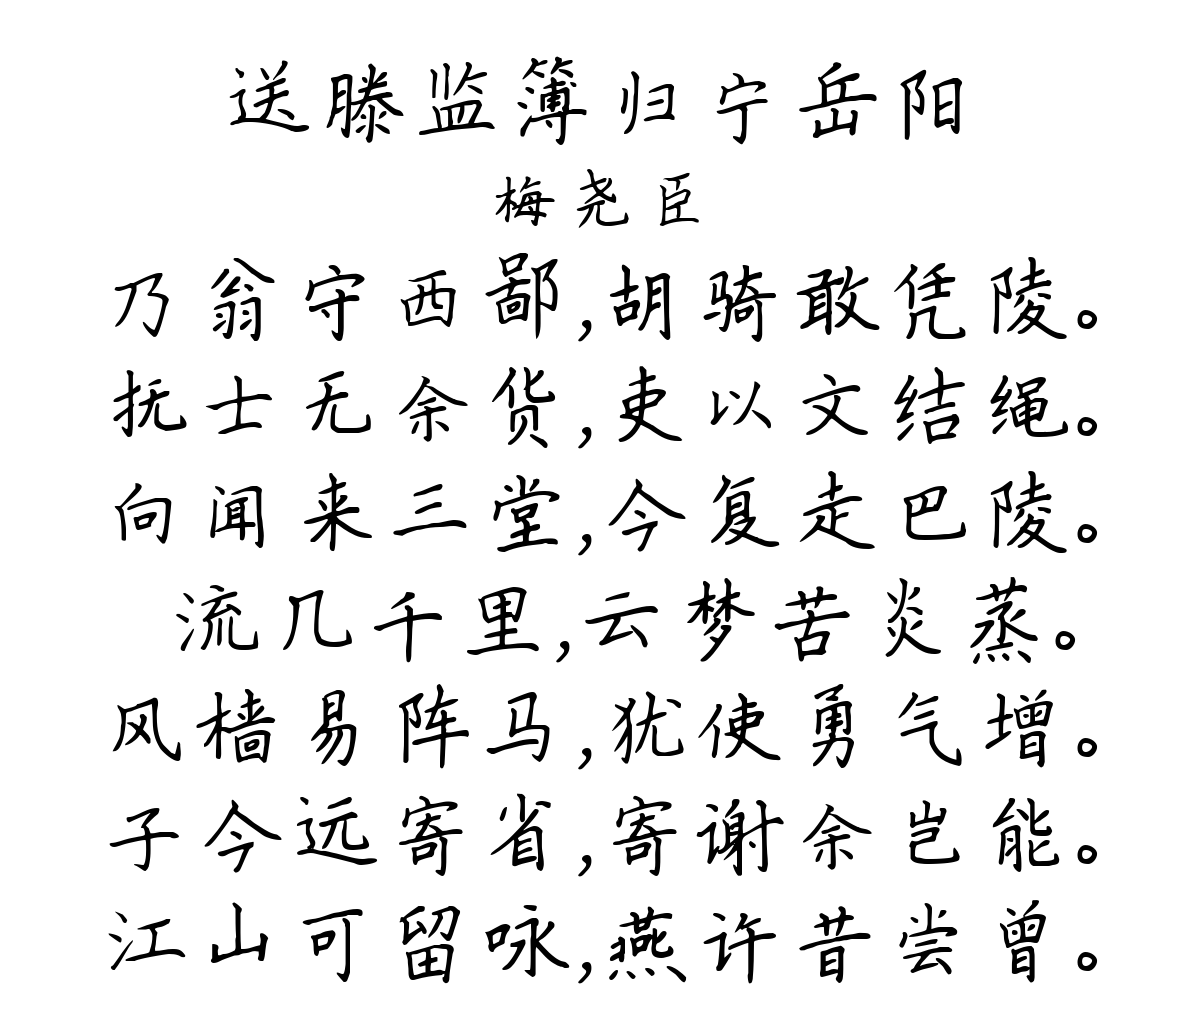 送滕监簿归宁岳阳
梅尧臣
乃翁守西鄙,胡骑敢凭陵。
抚士无余货,吏以文结绳。
向闻来三堂,今复走巴陵。
流几千里,云梦苦炎蒸。
风樯易阵马,犹使勇气增。
子今远寄省,寄谢余岂能。
江山可留咏,燕许昔尝曾。